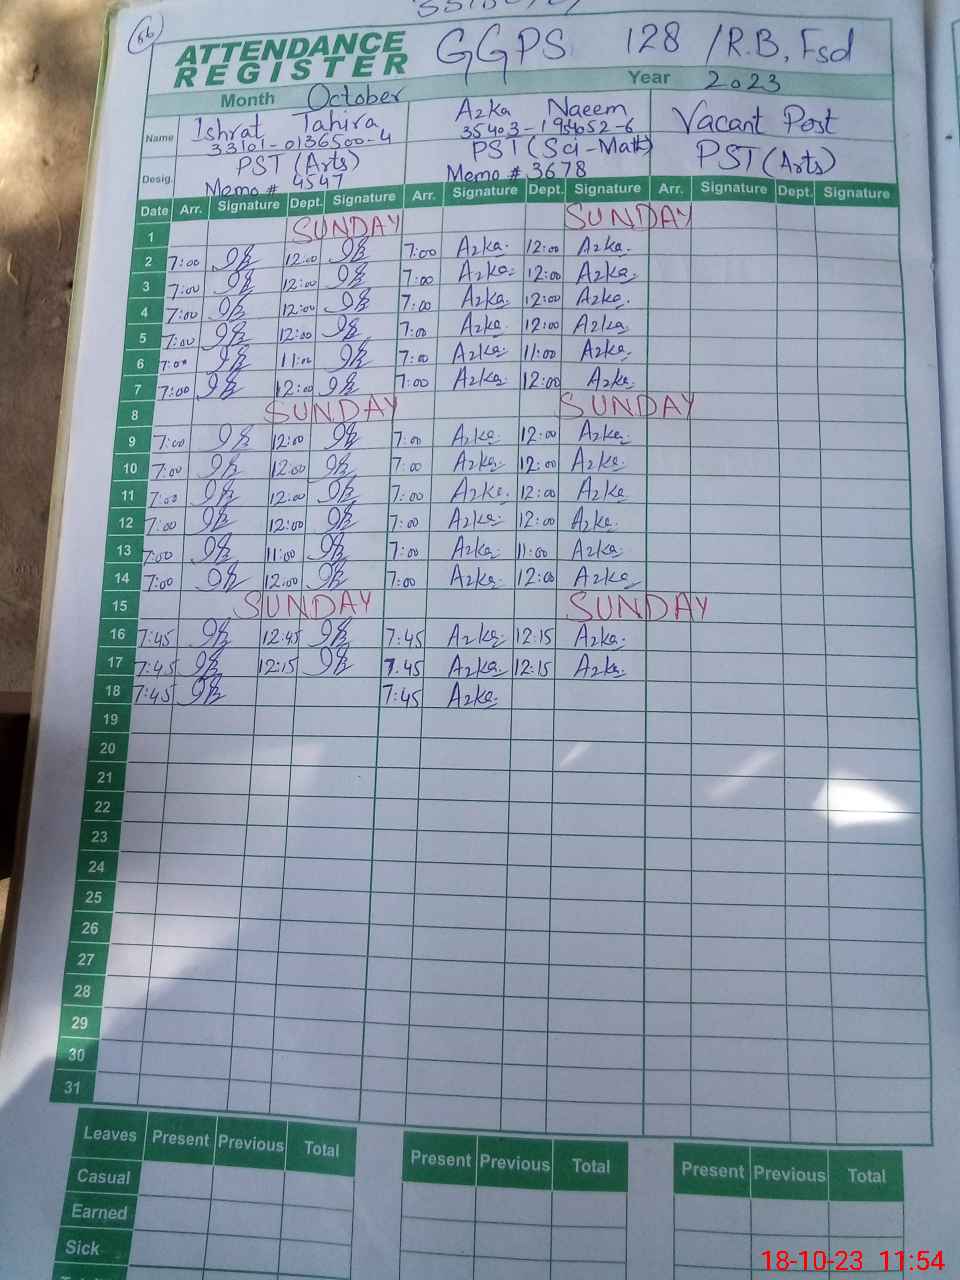 56
ATTENDANCE REGISTER GGPS 128 /R.B, Fsd
Month October Year 2023
Name Ishrat Tahira Azka Naeem Vacant Post
33101-0136500-4 35403-1954052-6
Desig. PST (Arts) PST (Sci-Math) PST (Arts)
Memo # 4547 Memo # 3678
Date Arr. Signature Dept. Signature Arr. Signature Dept. Signature Arr. Signature Dept. Signature
1 SUNDAY SUNDAY
2 7:00 12:00 7:00 Azka. 12:00 Azka.
3 7:00 12:00 7:00 Azka. 12:00 Azka.
4 7:00 12:00 7:00 Azka. 12:00 Azka.
5 7:00 12:00 7:00 Azka. 12:00 Azka
6 7:00 11:00 7:00 Azka. 11:00 Azka.
7 7:00 12:00 7:00 Azka. 12:00 Azka.
8 SUNDAY SUNDAY
9 7:00 12:00 7:00 Azka. 12:00 Azka.
10 7:00 12:00 7:00 Azka. 12:00 Azka.
11 7:00 12:00 7:00 Azka. 12:00 Azka
12 7:00 12:00 7:00 Azka. 12:00 Azka.
13 7:00 11:00 7:00 Azka. 11:00 Azka.
14 7:00 12:00 7:00 Azka. 12:00 Azka
15 SUNDAY SUNDAY
16 7:45 12:45 7:45 Azka. 12:15 Azka.
17 7:45 12:15 7.45 Azka. 12:15 Azka.
18 7:45 7:45 Azka.
19
20
21
22
23
24
25
26
27
28
29
30
31
Leaves Present Previous Total Present Previous Total Present Previous Total
Casual
Earned
Sick
18-10-23 11:54